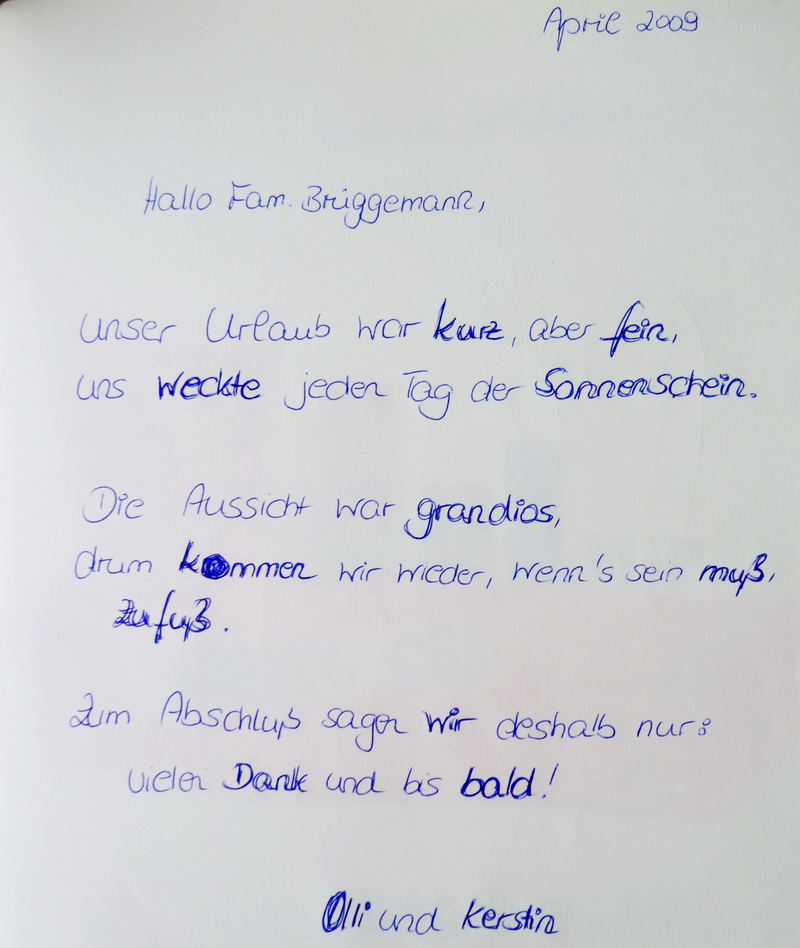 April 2009
Hallo Fam. Brüggemann,
unser Urlaub war kurz, aber fein,
uns weckte jeden Tag der Sonnenschein.
Die Aussicht war grandios,
drum kommen wir wieder, wenn's sein muß,
zufuß.
Zum Abschluß sagen wir deshalb nur:
vielen Dank und bis bald!
Olli und Kerstin